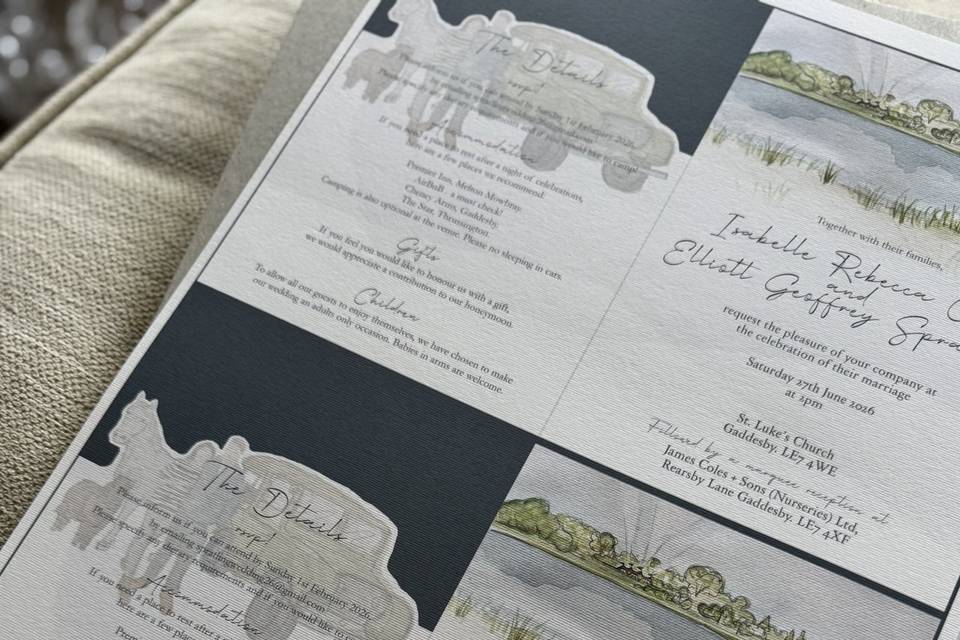 The Details
rsvp!
Please inform us if you can attend by Sunday 1st February 2026
Please specify any dietary requirements and if you would like to camp!
Accommodation
If you need a place to rest after a night of celebrations,
here are a few places we recommend:
Premier Inn, Melton Mowbray.
AirBnB - a must check!
Cheney Arms, Gaddesby.
The Star, Thrussington.
Camping is also optional at the venue. Please no sleeping in cars.
Gifts
If you feel you would like to honour us with a gift,
we would appreciate a contribution to our honeymoon.
Children
To allow all our guests to enjoy themselves, we have chosen to make
our wedding an adults only occasion. Babies in arms are welcome.
Together with their families,
Isabelle Rebecca
and
Elliott Geoffrey
request the pleasure of your company at
the celebration of their marriage
Saturday 27th June 2026
at 2pm
St. Luke's Church
Gaddesby. LE7 4WE
Followed by a marquee reception at
James Coles + Sons (Nurseries) Ltd,
Rearsby Lane Gaddesby. LE7 4XF
The Details
rsvp!
Please inform us if you can attend by Sunday 1st February 2026
by emailing spratlingwedding26@gmail.com
Please specify any dietary requirements and if you would like to
Accommodation
If you need a place to rest after a
here are a few places
Premier